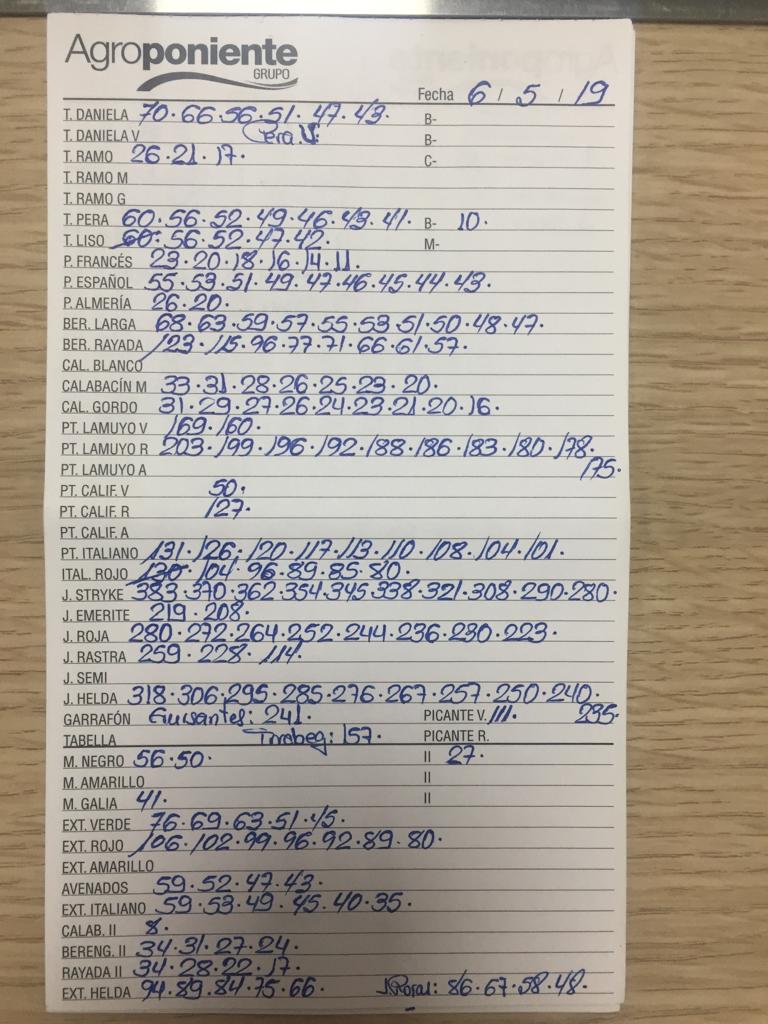 Agroponiente
GRUPO
Fecha 6 / 5 / 19
T. DANIELA 70.66.56.51.47.43. B-
T. DANIELA V Pera V: B-
T. RAMO 26.21.17. C-
T. RAMO M
T. RAMO G
T. PERA 60.56.52.49.46.43.41. B- 10.
T. LISO 60.56.52.47.42. M-
P. FRANCÉS 23.20.18.16.14.11.
P. ESPAÑOL 55.53.51.49.47.46.45.44.43.
P. ALMERÍA 26.20.
BER. LARGA 68.63.59.57.55.53.51.50.48.47.
BER. RAYADA 123.115.96.77.71.66.61.57.
CAL. BLANCO
CALABACÍN M 33.31.28.26.25.23.20.
CAL. GORDO 31.29.27.26.24.23.21.20.16.
PT. LAMUYO V 169.160.
PT. LAMUYO R 203.199.196.192.188.186.183.180.178.
PT. LAMUYO A 175.
PT. CALIF. V 50.
PT. CALIF. R 127.
PT. CALIF. A
PT. ITALIANO 131.126.120.117.113.110.108.104.101.
ITAL. ROJO 130.104.96.89.85.80.
J. STRYKE 383.370.362.354.345.338.321.308.290.280.
J. EMERITE 219.208.
J. ROJA 280.272.264.252.244.236.230.223.
J. RASTRA 259.228.114.
J. SEMI
J. HELDA 318.306.295.285.276.267.257.250.240.
GARRAFÓN Guisantes: 241. PICANTE V. 111. 295.
TABELLA Tirabeg: 157. PICANTE R.
M. NEGRO 56.50. II 27.
M. AMARILLO II
M. GALIA 41. II
EXT. VERDE 76.69.63.51.45.
EXT. ROJO 106.102.99.96.92.89.80.
EXT. AMARILLO
AVENADOS 59.52.47.43.
EXT. ITALIANO 59.53.49.45.40.35.
CALAB. II 8.
BERENG. II 34.31.27.24.
RAYADA II 34.28.22.17.
EXT. HELDA 94.89.84.75.66. 86.67.58.48.